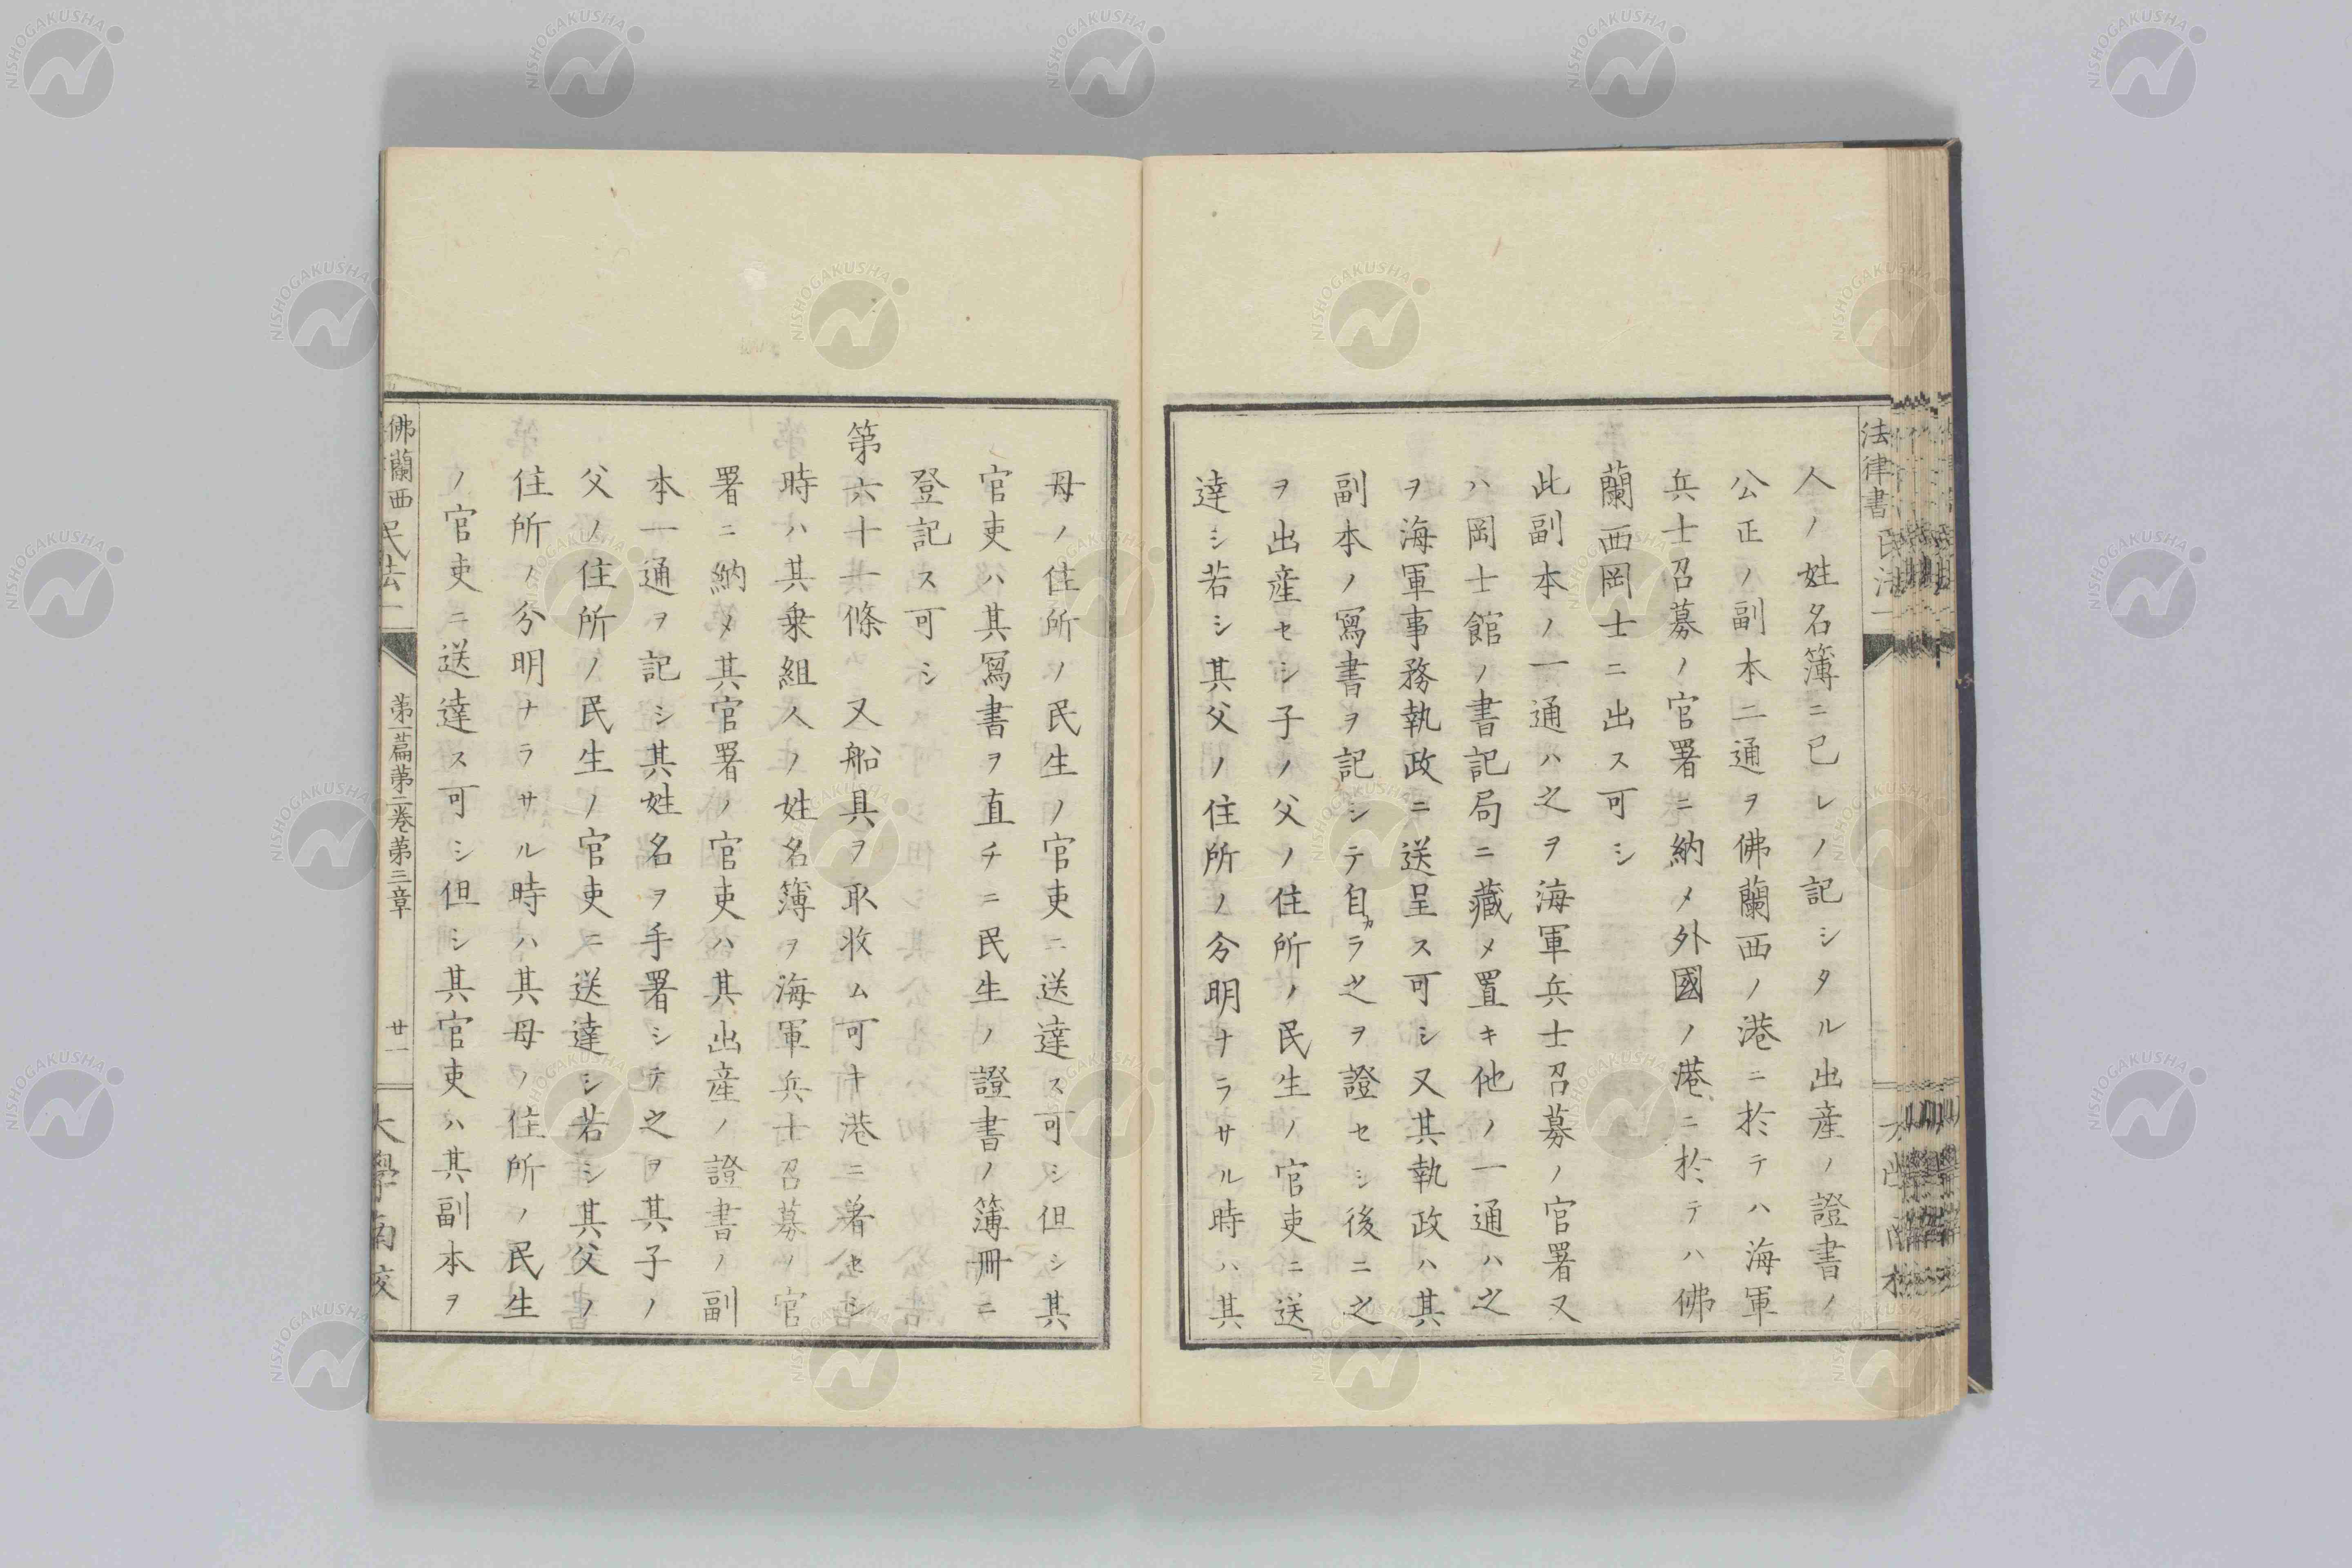 法律書 民法一
人ノ姓名簿ニ已レノ記シタル出産ノ證書ノ
公正ノ副本二通ヲ佛蘭西ノ港ニ於テハ海軍
兵士召募ノ官署ニ納メ外國ノ港ニ於テハ佛
蘭西岡士ニ出ス可シ
此副本ノ一通ハ之ヲ海軍兵士召募ノ官署又
ハ岡士館ノ書記局ニ藏メ置キ他ノ一通ハ之
ヲ海軍事務執政ニ送呈ス可シ又其執政ハ其
副本ノ寫書ヲ記シテ自カラ之ヲ證セシ後ニ之
ヲ出産セシ子ノ父ノ住所ノ民生ノ官吏ニ送
達シ若シ其父ノ住所ノ分明ナラサル時ハ其
母ノ住所ノ民生ノ官吏ニ送達ス可シ但シ其
官吏ハ其寫書ヲ直チニ民生ノ證書ノ簿冊ニ
登記ス可シ
第六十一條 又船具ヲ取收ム可キ港ニ著セシ
時ハ其乗組人ノ姓名簿ヲ海軍兵士召募ノ官
署ニ納メ其官署ノ官吏ハ其出産ノ證書ノ副
本一通ヲ記シ其姓名ヲ手署シテ之ヲ其子ノ
父ノ住所ノ民生ノ官吏ニ送達シ若シ其父ノ
住所ノ分明ナラサル時ハ其母ノ住所ノ民生
ノ官吏ニ送達ス可シ但シ其官吏ハ其副本ヲ
佛蘭西民法一 第一篇第二卷第三章 廿一 大學南校
NISHOGAKUSHA